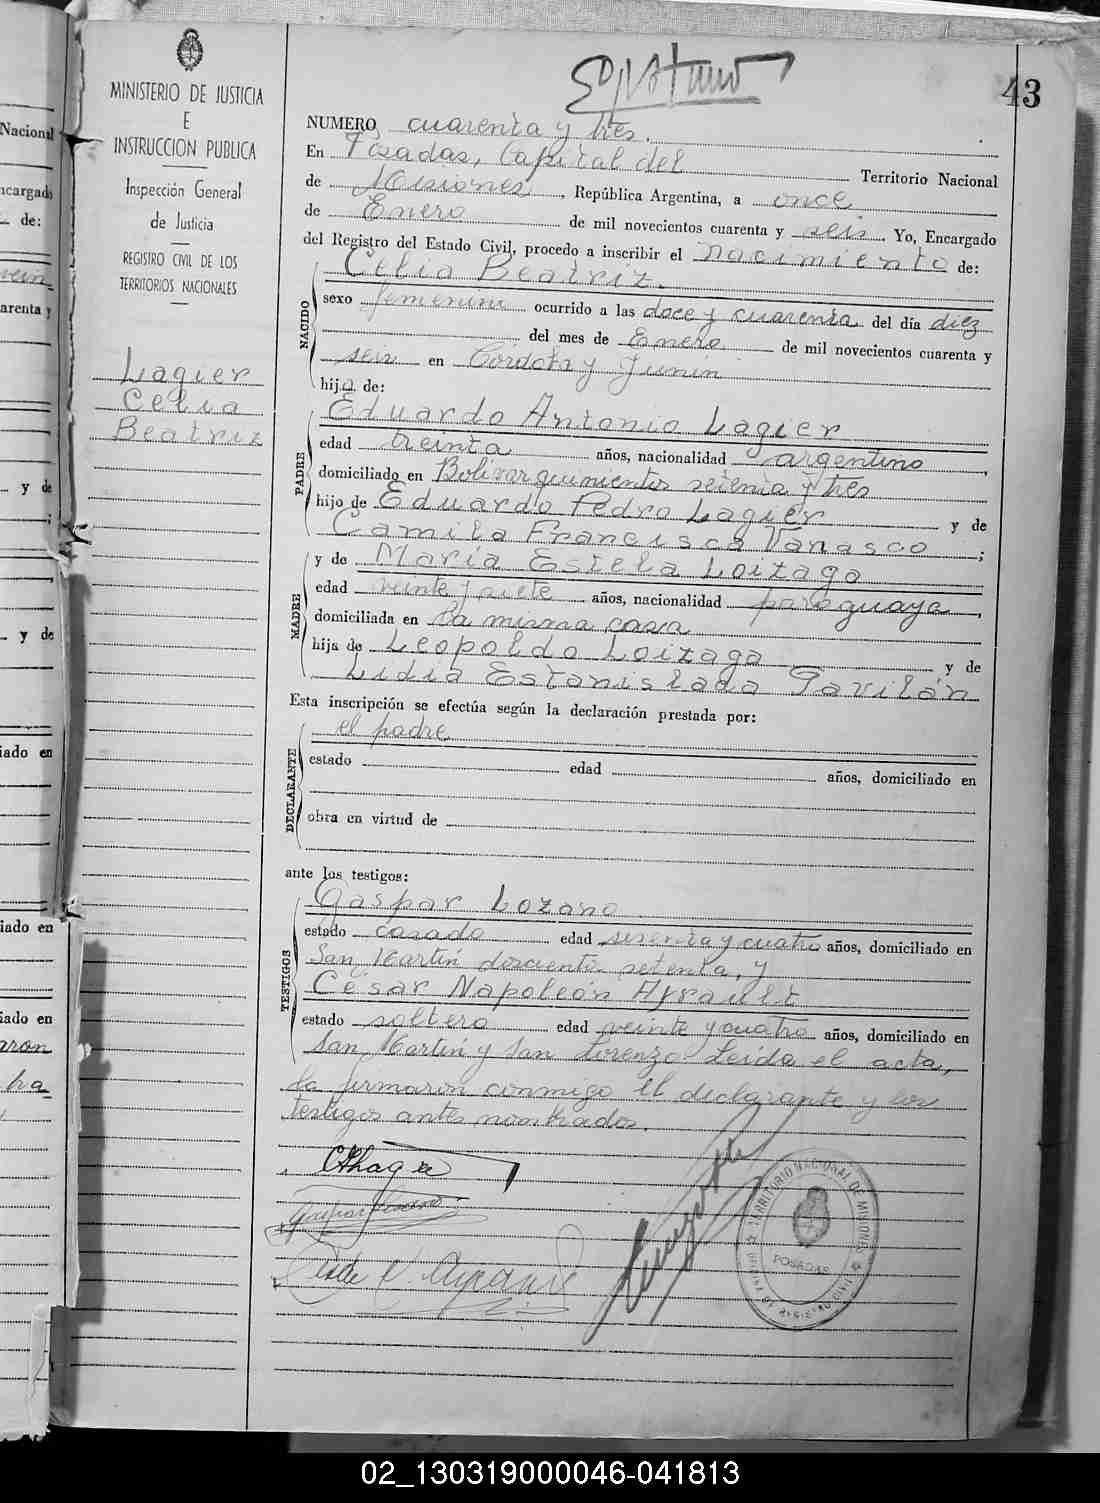 43
MINISTERIO DE JUSTICIA
E
INSTRUCCION PUBLICA
Inspección General
de Justicia
REGISTRO CIVIL DE LOS
TERRITORIOS NACIONALES
Lagier
Celia
Beatriz
NUMERO cuarenta y tres.
En Posadas, Capital del Territorio Nacional
de Misiones, República Argentina, a once
de Enero de mil novecientos cuarenta y seis. Yo, Encargado
del Registro del Estado Civil, procedo a inscribir el nacimiento de:
NACIDO
Celia Beatriz.
sexo femenino ocurrido a las doce y cuarenta del día diez
del mes de Enero de mil novecientos cuarenta y
seis en Córdoba y Junin
hija de:
PADRE
Eduardo Antonio Lagier
edad treinta años, nacionalidad argentino,
domiciliado en Bolivar quinientos setenta y tres
hijo de Eduardo Pedro Lagier y de
Camila Francisca Vanasco;
MADRE
y de María Estela Loizaga
edad veinte y siete años, nacionalidad paraguaya,
domiciliada en la misma casa
hija de Leopoldo Loizaga y de
Lidia Estanislada Gavilán
Esta inscripción se efectúa según la declaración prestada por:
DECLARANTE
el padre
estado edad años, domiciliado en
obra en virtud de
ante los testigos:
TESTIGOS
Gaspar Lozano
estado casado edad sesenta y cuatro años, domiciliado en
San Martín doscientos setenta, y
César Napoleón Ayrault
estado soltero edad veinte y cuatro años, domiciliado en
San Martín y San Lorenzo. Leída el acta,
la firmaron conmigo el declarante y los
testigos antes nombrados.
TERRITORIO NACIONAL DE MISIONES
POSADAS
Nacional
ncargado
de:
arenta y
y de
;
y de
iado en
iado en
iado en
aron
ha
02_130319000046-041813